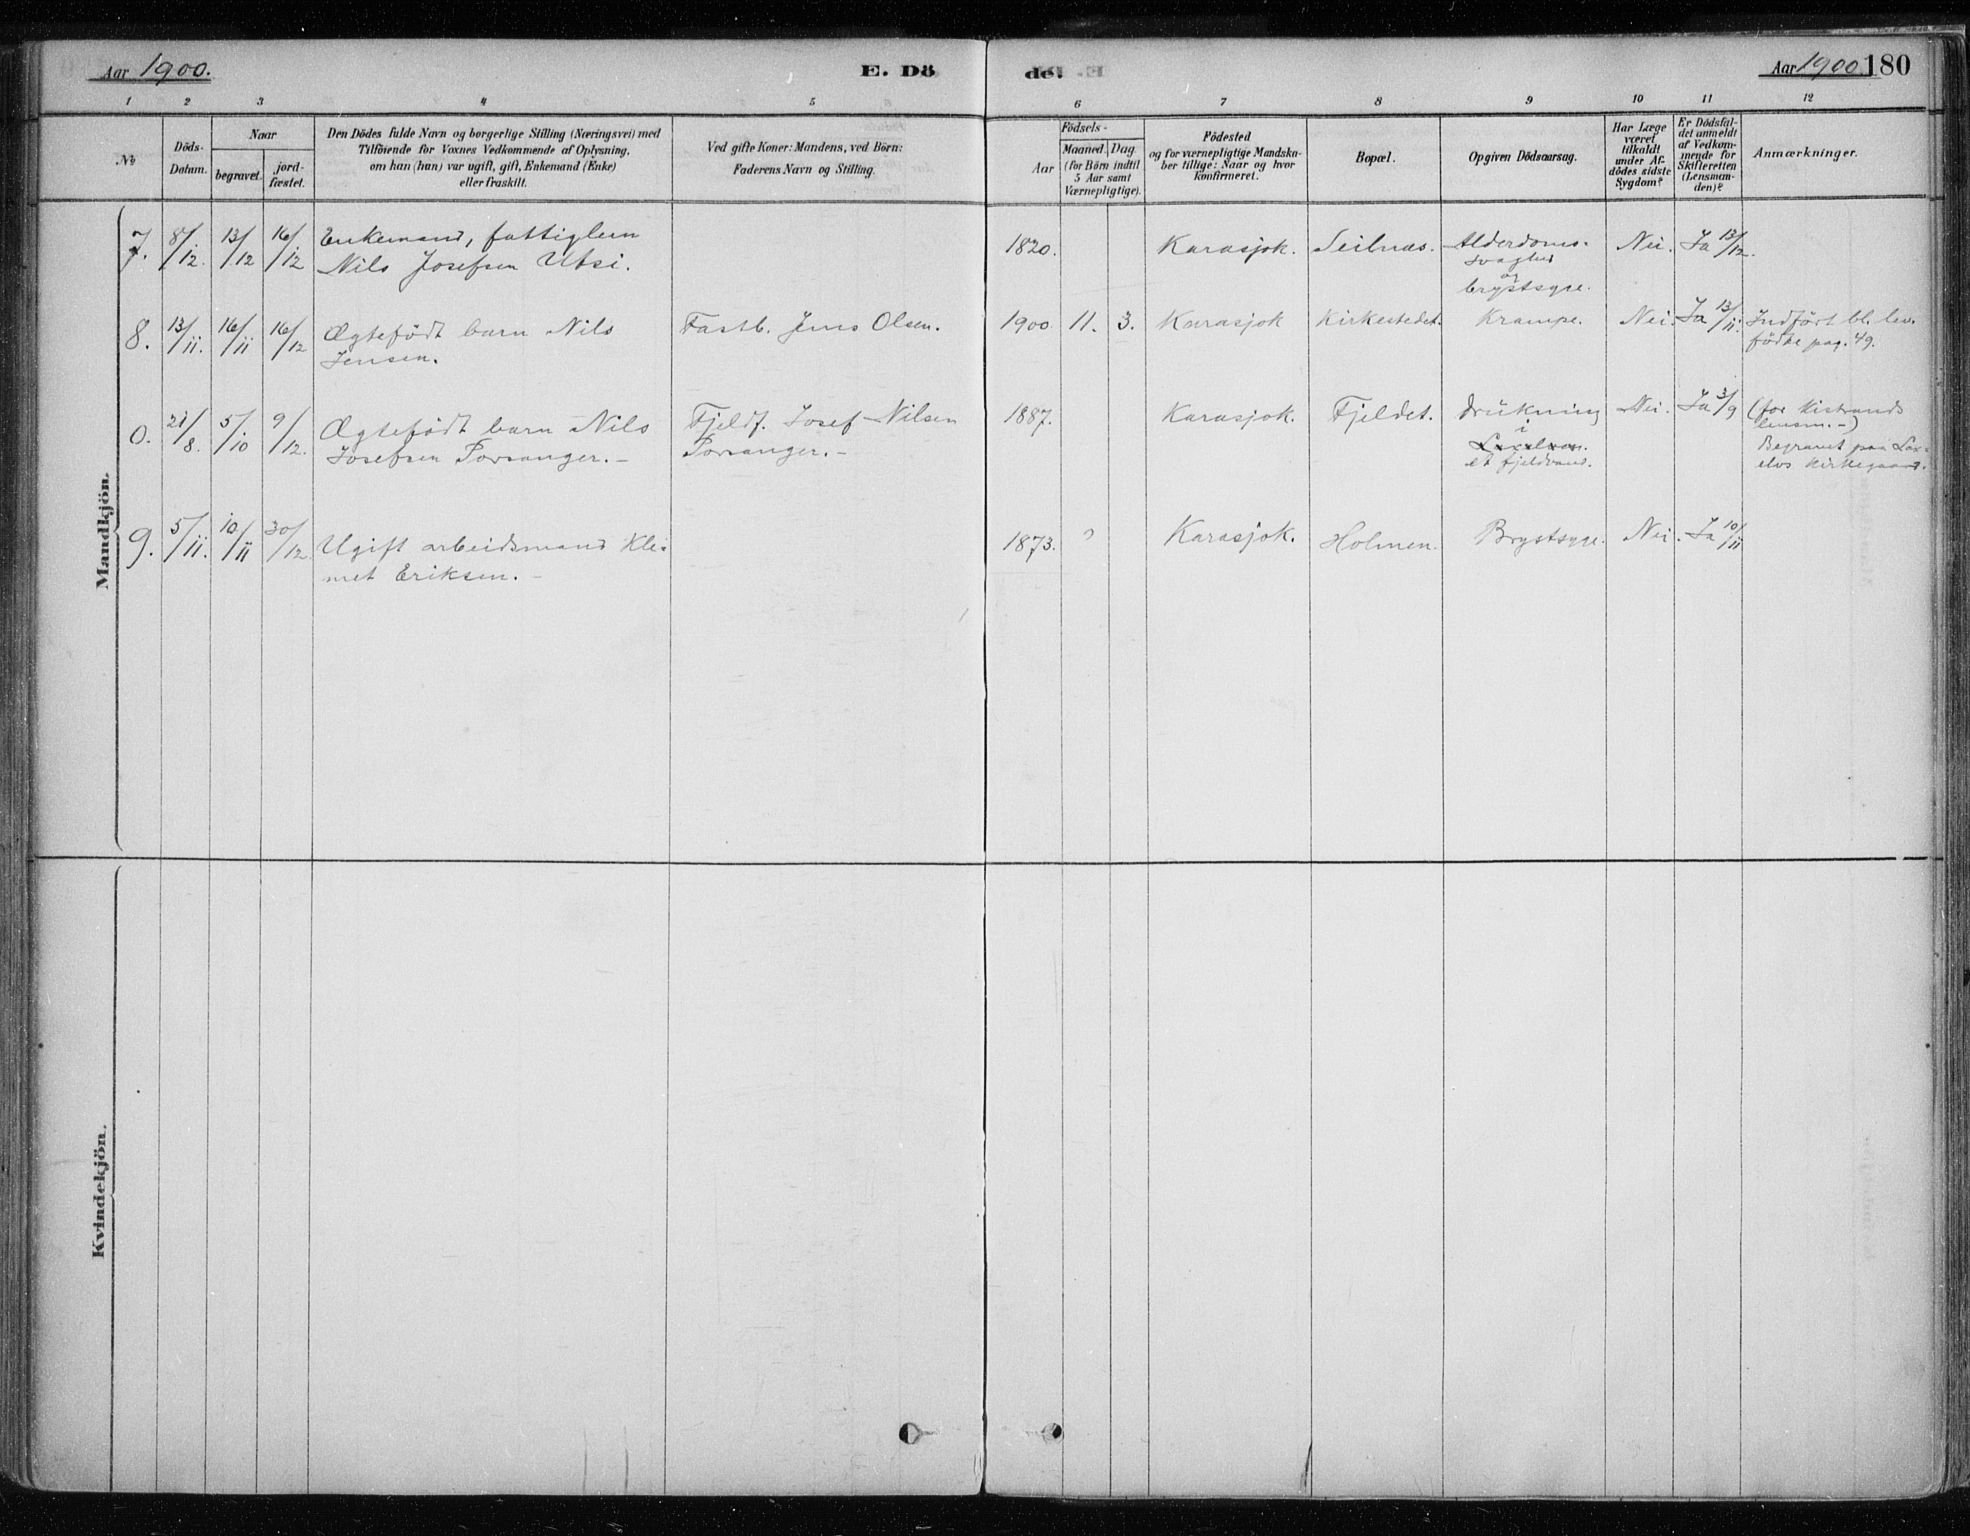 Aar 1900.
E. Dö
de.
Aar 1900. 180
1 2 3 4 5 6 7 8 9 10 11 12
No
Döds-
Datum.
Naar
begravet.
jord-
fæstet.
Den Dödes fulde Navn og borgerlige Stilling (Næringsvei) med
Tilföiende for Voxnes Vedkommende af Oplysning,
om han (hun) var ugift, gift, Enkemand (Enke)
eller fraskilt.
Ved gifte Koner: Mandens, ved Börn:
Faderens Navn og Stilling.
Födsels-
Aar
Maaned. Dag
(for Börn indtil
5 Aar samt
Værnepligtige).
Födested
og for værnepligtige Mandska-
ber tillige: Naar og hvor
konfirmeret.
Bopæl.
Opgiven Dödsaarsag.
Har Læge
været
tilkaldt
under Af-
dödes sidste
Sygdom?
Er Dödsfal-
det anmeldt
af Vedkom-
mende for
Skifteretten
(Lensman-
den)?
Anmærkninger.
Mandkjön.
7. 8/12. 13/12 16/12 Enkemand, fattiglem
Nils Josefsen Utsi.
1820. Karasjok. Seilnæs. Alderdoms-
svaghed
og
brystsyge.
Nei. Ja 13/12.
8. 13/11. 16/11 16/12 Ægtefödt barn Nils
Jensen.
Fastb. Jens Olsen.
1900 11. 3. Karasjok Kirkestedet. Krampe. Nei. Ja 13/11. Indfört bl. lev.
födte pag. 49.
0. 21/8. 5/10 9/12. Ægtefödt barn Nils
Josefsen Porsanger. -
Fjeldf. Josef Nilsen
Porsanger. -
1887. Karasjok. Fjeldet. Drukning
i
et fjeldvand.
Nei. Ja 3/9 (for Kistrands
lensm. -)
Begravet paa Lax-
elvs kirkegaard.
9. 5/11. 10/11 30/12. Ugift arbeidsmand Kle-
met Eriksen. -
1873. ? Karasjok. Holmen. Brystsyge. Nei. Ja 10/11
Kvindekjön.